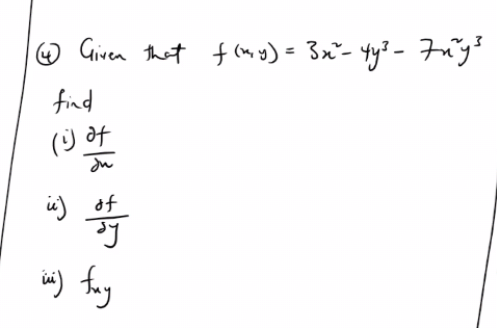 ④ Given that f(x,y) = 3x² - 4y³ - 7x²y³
find
(i) ∂f/∂x
ii) ∂f/∂y
iii) fxy